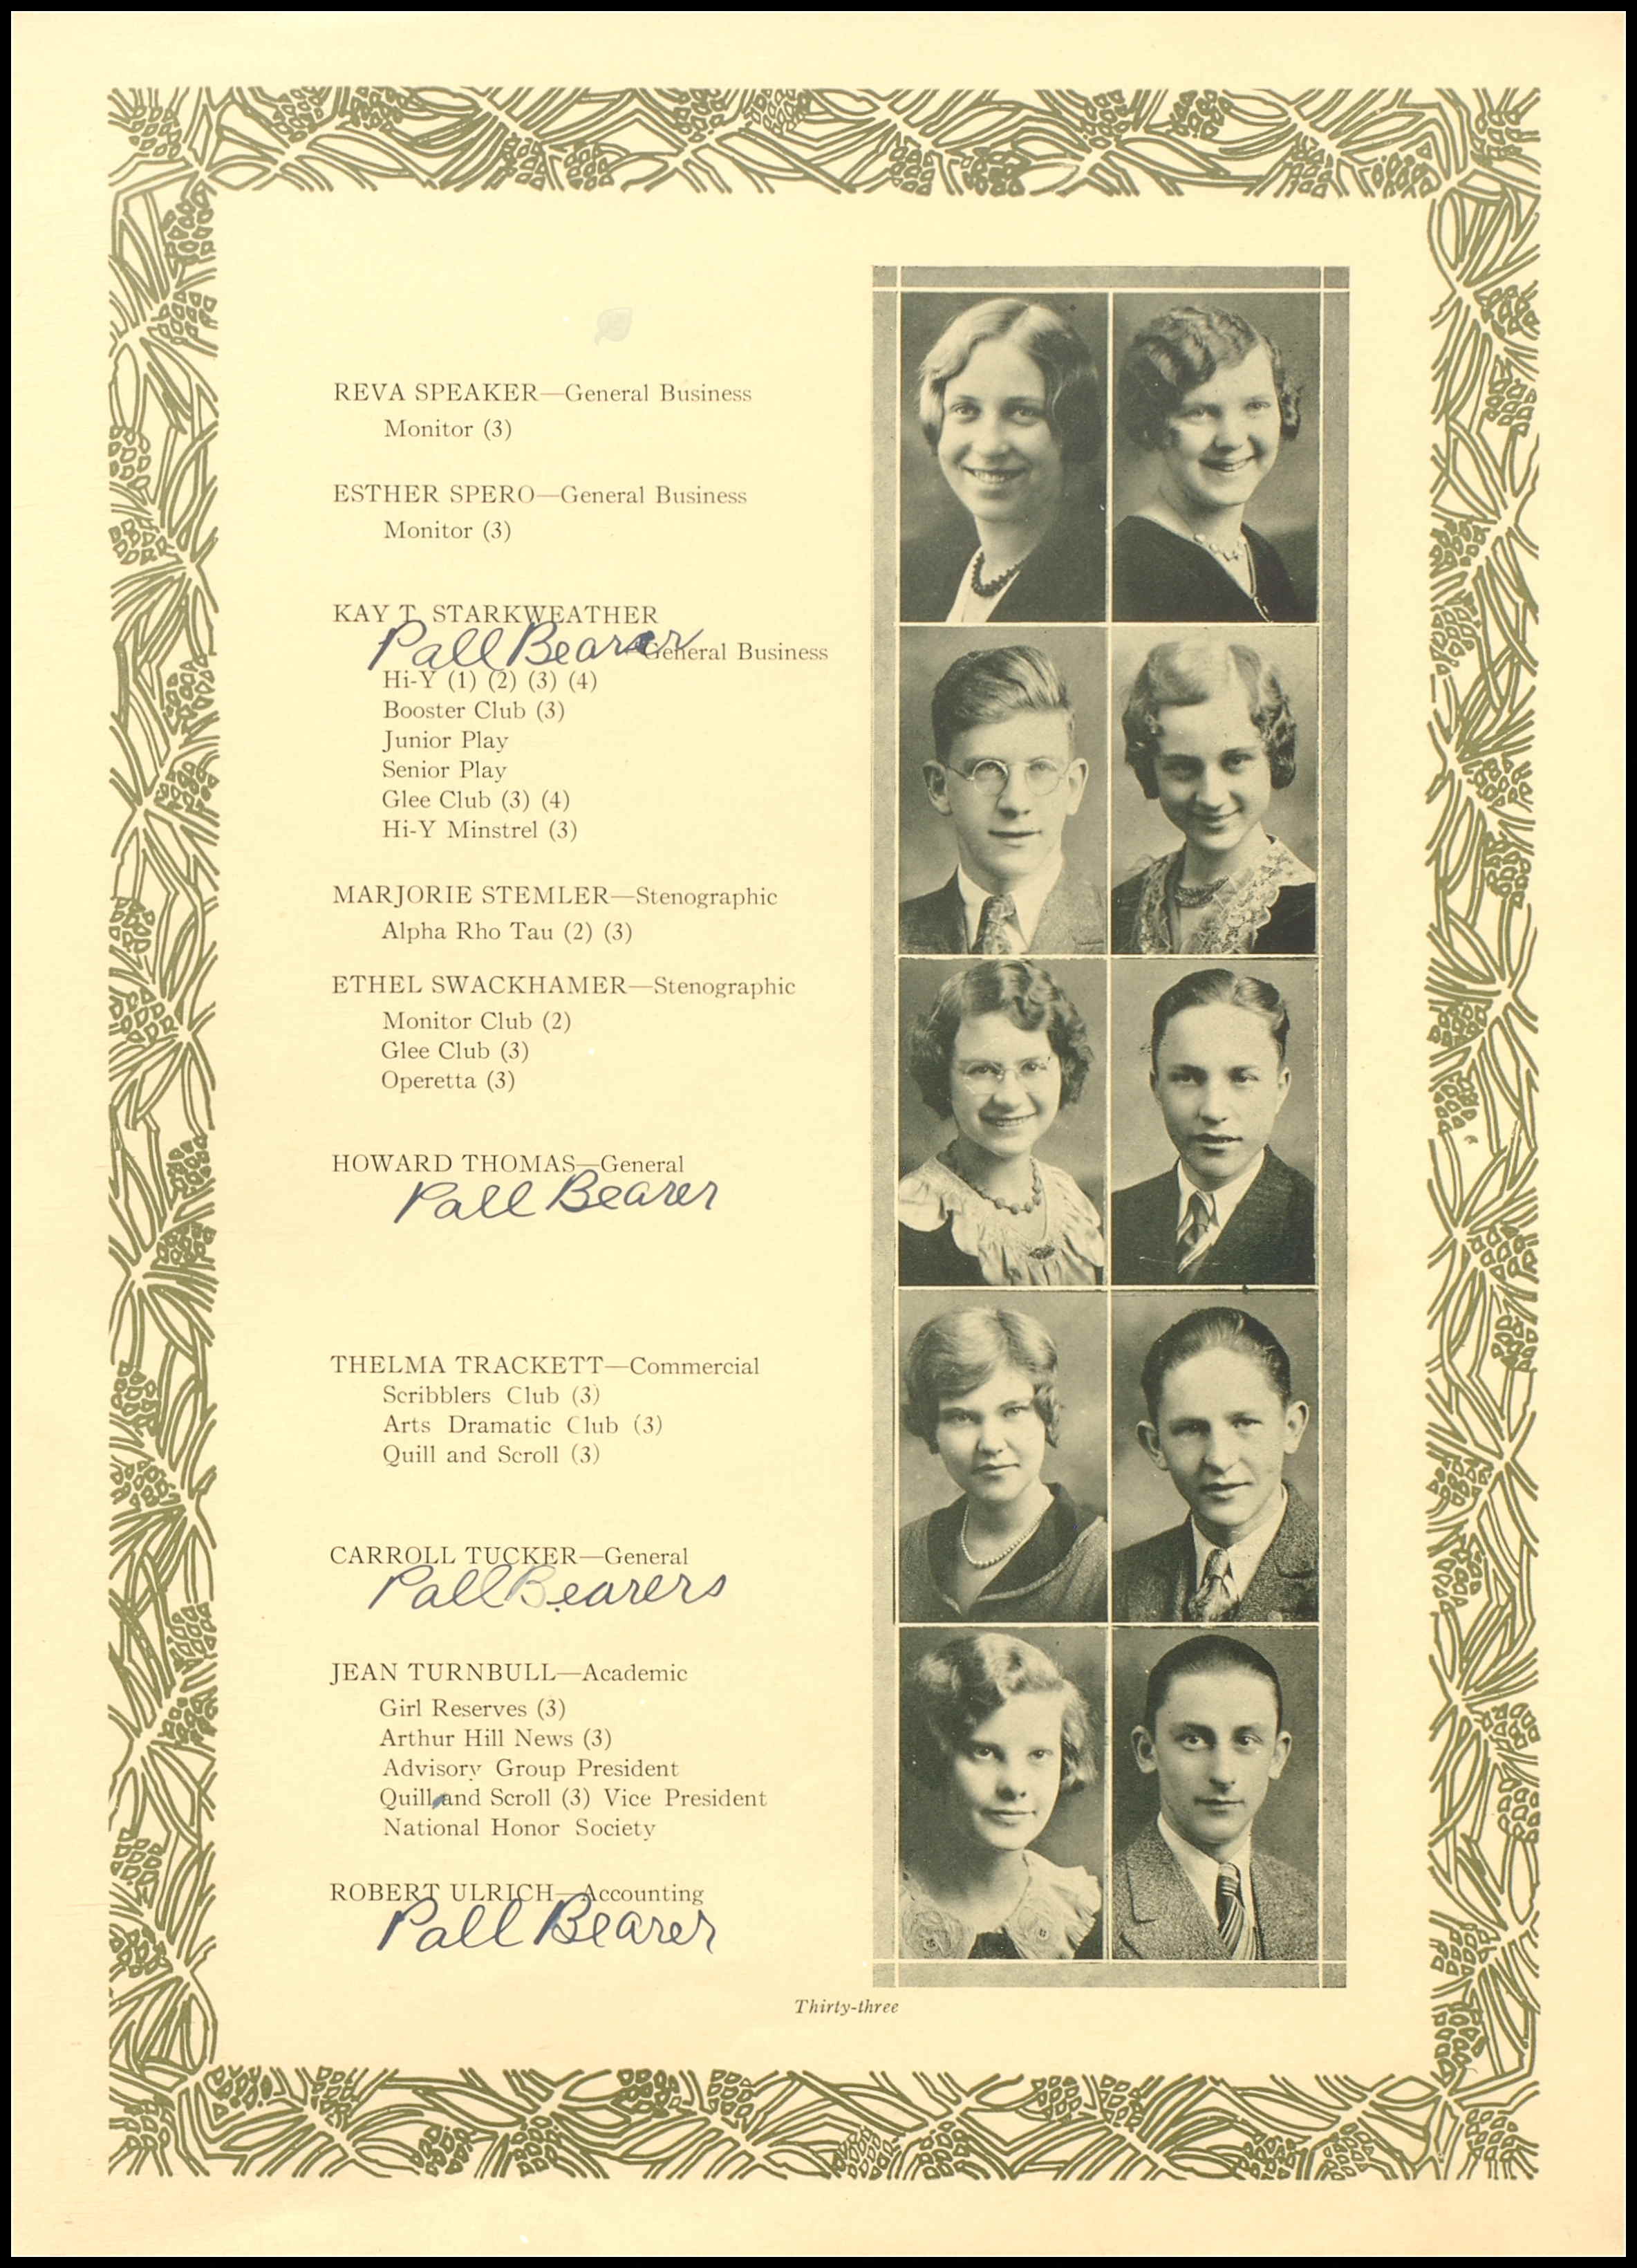 REVA SPEAKER—General Business
Monitor (3)
ESTHER SPERO—General Business
Monitor (3)
KAY T. STARKWEATHER
Pall Bearer
—General Business
Hi-Y (1) (2) (3) (4)
Booster Club (3)
Junior Play
Senior Play
Glee Club (3) (4)
Hi-Y Minstrel (3)
MARJORIE STEMLER—Stenographic
Alpha Rho Tau (2) (3)
ETHEL SWACKHAMER—Stenographic
Monitor Club (2)
Glee Club (3)
Operetta (3)
HOWARD THOMAS—General
Pall Bearer
THELMA TRACKETT—Commercial
Scribblers Club (3)
Arts Dramatic Club (3)
Quill and Scroll (3)
CARROLL TUCKER—General
Pall Bearers
JEAN TURNBULL—Academic
Girl Reserves (3)
Arthur Hill News (3)
Advisory Group President
Quill and Scroll (3) Vice President
National Honor Society
ROBERT ULRICH—Accounting
Pall Bearer
Thirty-three